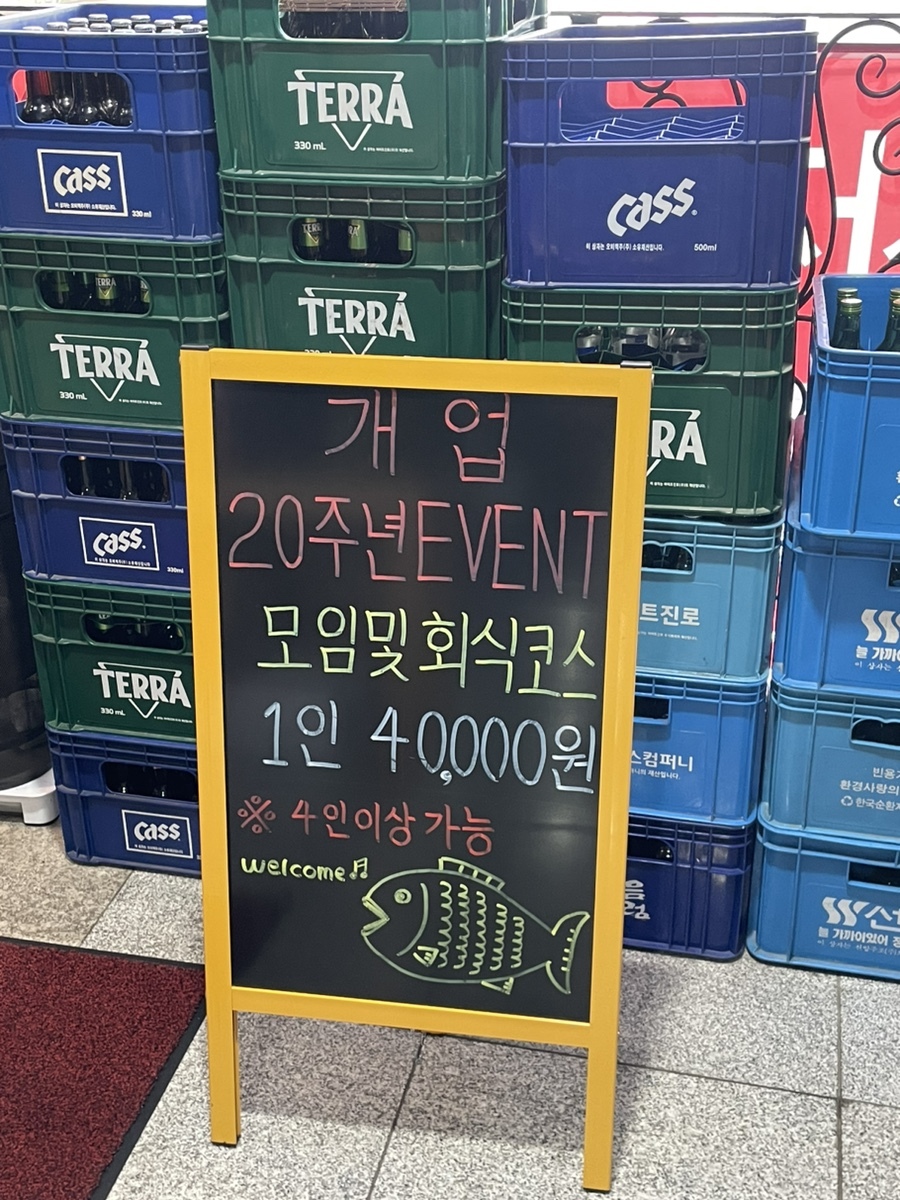 개업
20주년EVENT
모임및 회식코스
1인 40,000원
※ 4인이상 가능
welcome♬
TERRA
330 mL
Cass
330 ml
Cass
이 상자는 오비맥주(주) 소유재산입니다.
500ml
TERRA
TERRA
330 mL
Cass
330ml
TERRA
330 mL
Cass
RA
트진로
스컴퍼니
늘 가까이
빈용기
환경사랑의
한국순환자
늘 가까이있어